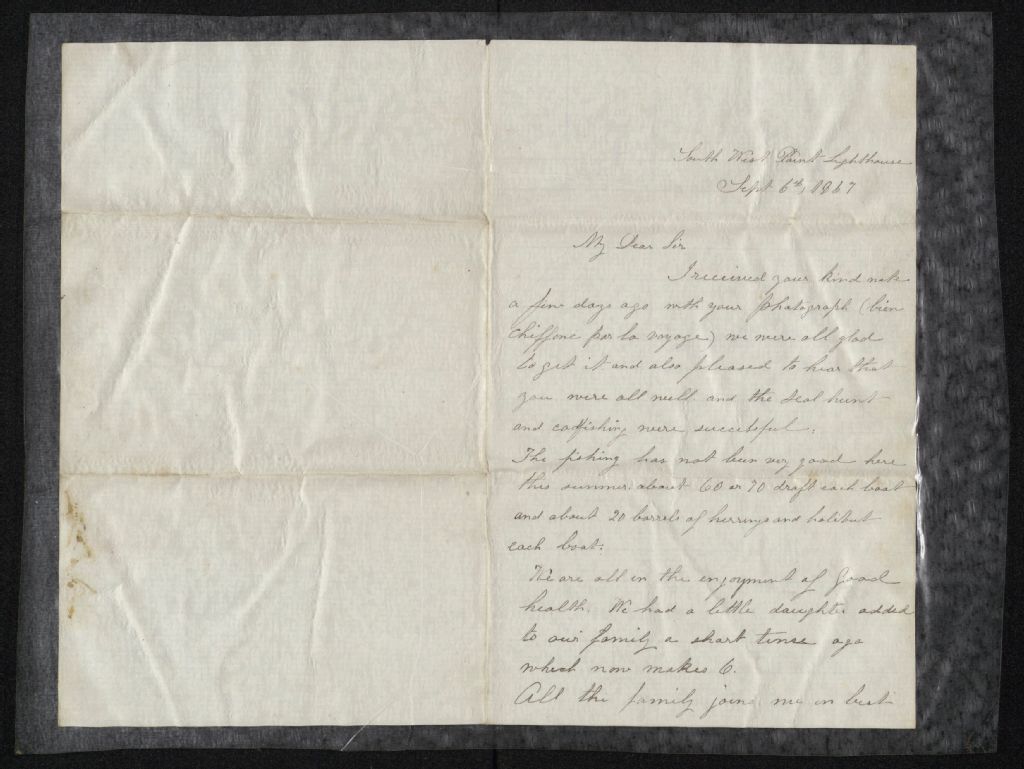 South West Point Lighthouse
Sept 6th, 1867
My Dear Sir
I received your kind note
a few days ago with your photograph (bien
chiffone par la voyage) we were all glad
to get it and also pleased to hear that
you were all well and the seal hunt
and codfishing were successful.
The fishing has not been very good here
this summer about 60 or 70 draft each boat
and about 20 barrels of herrings and halibut
each boat.
We are all in the enjoyment of good
health. We had a little daughter added
to our family a short time ago
which now makes 6.
All the family joins me in best